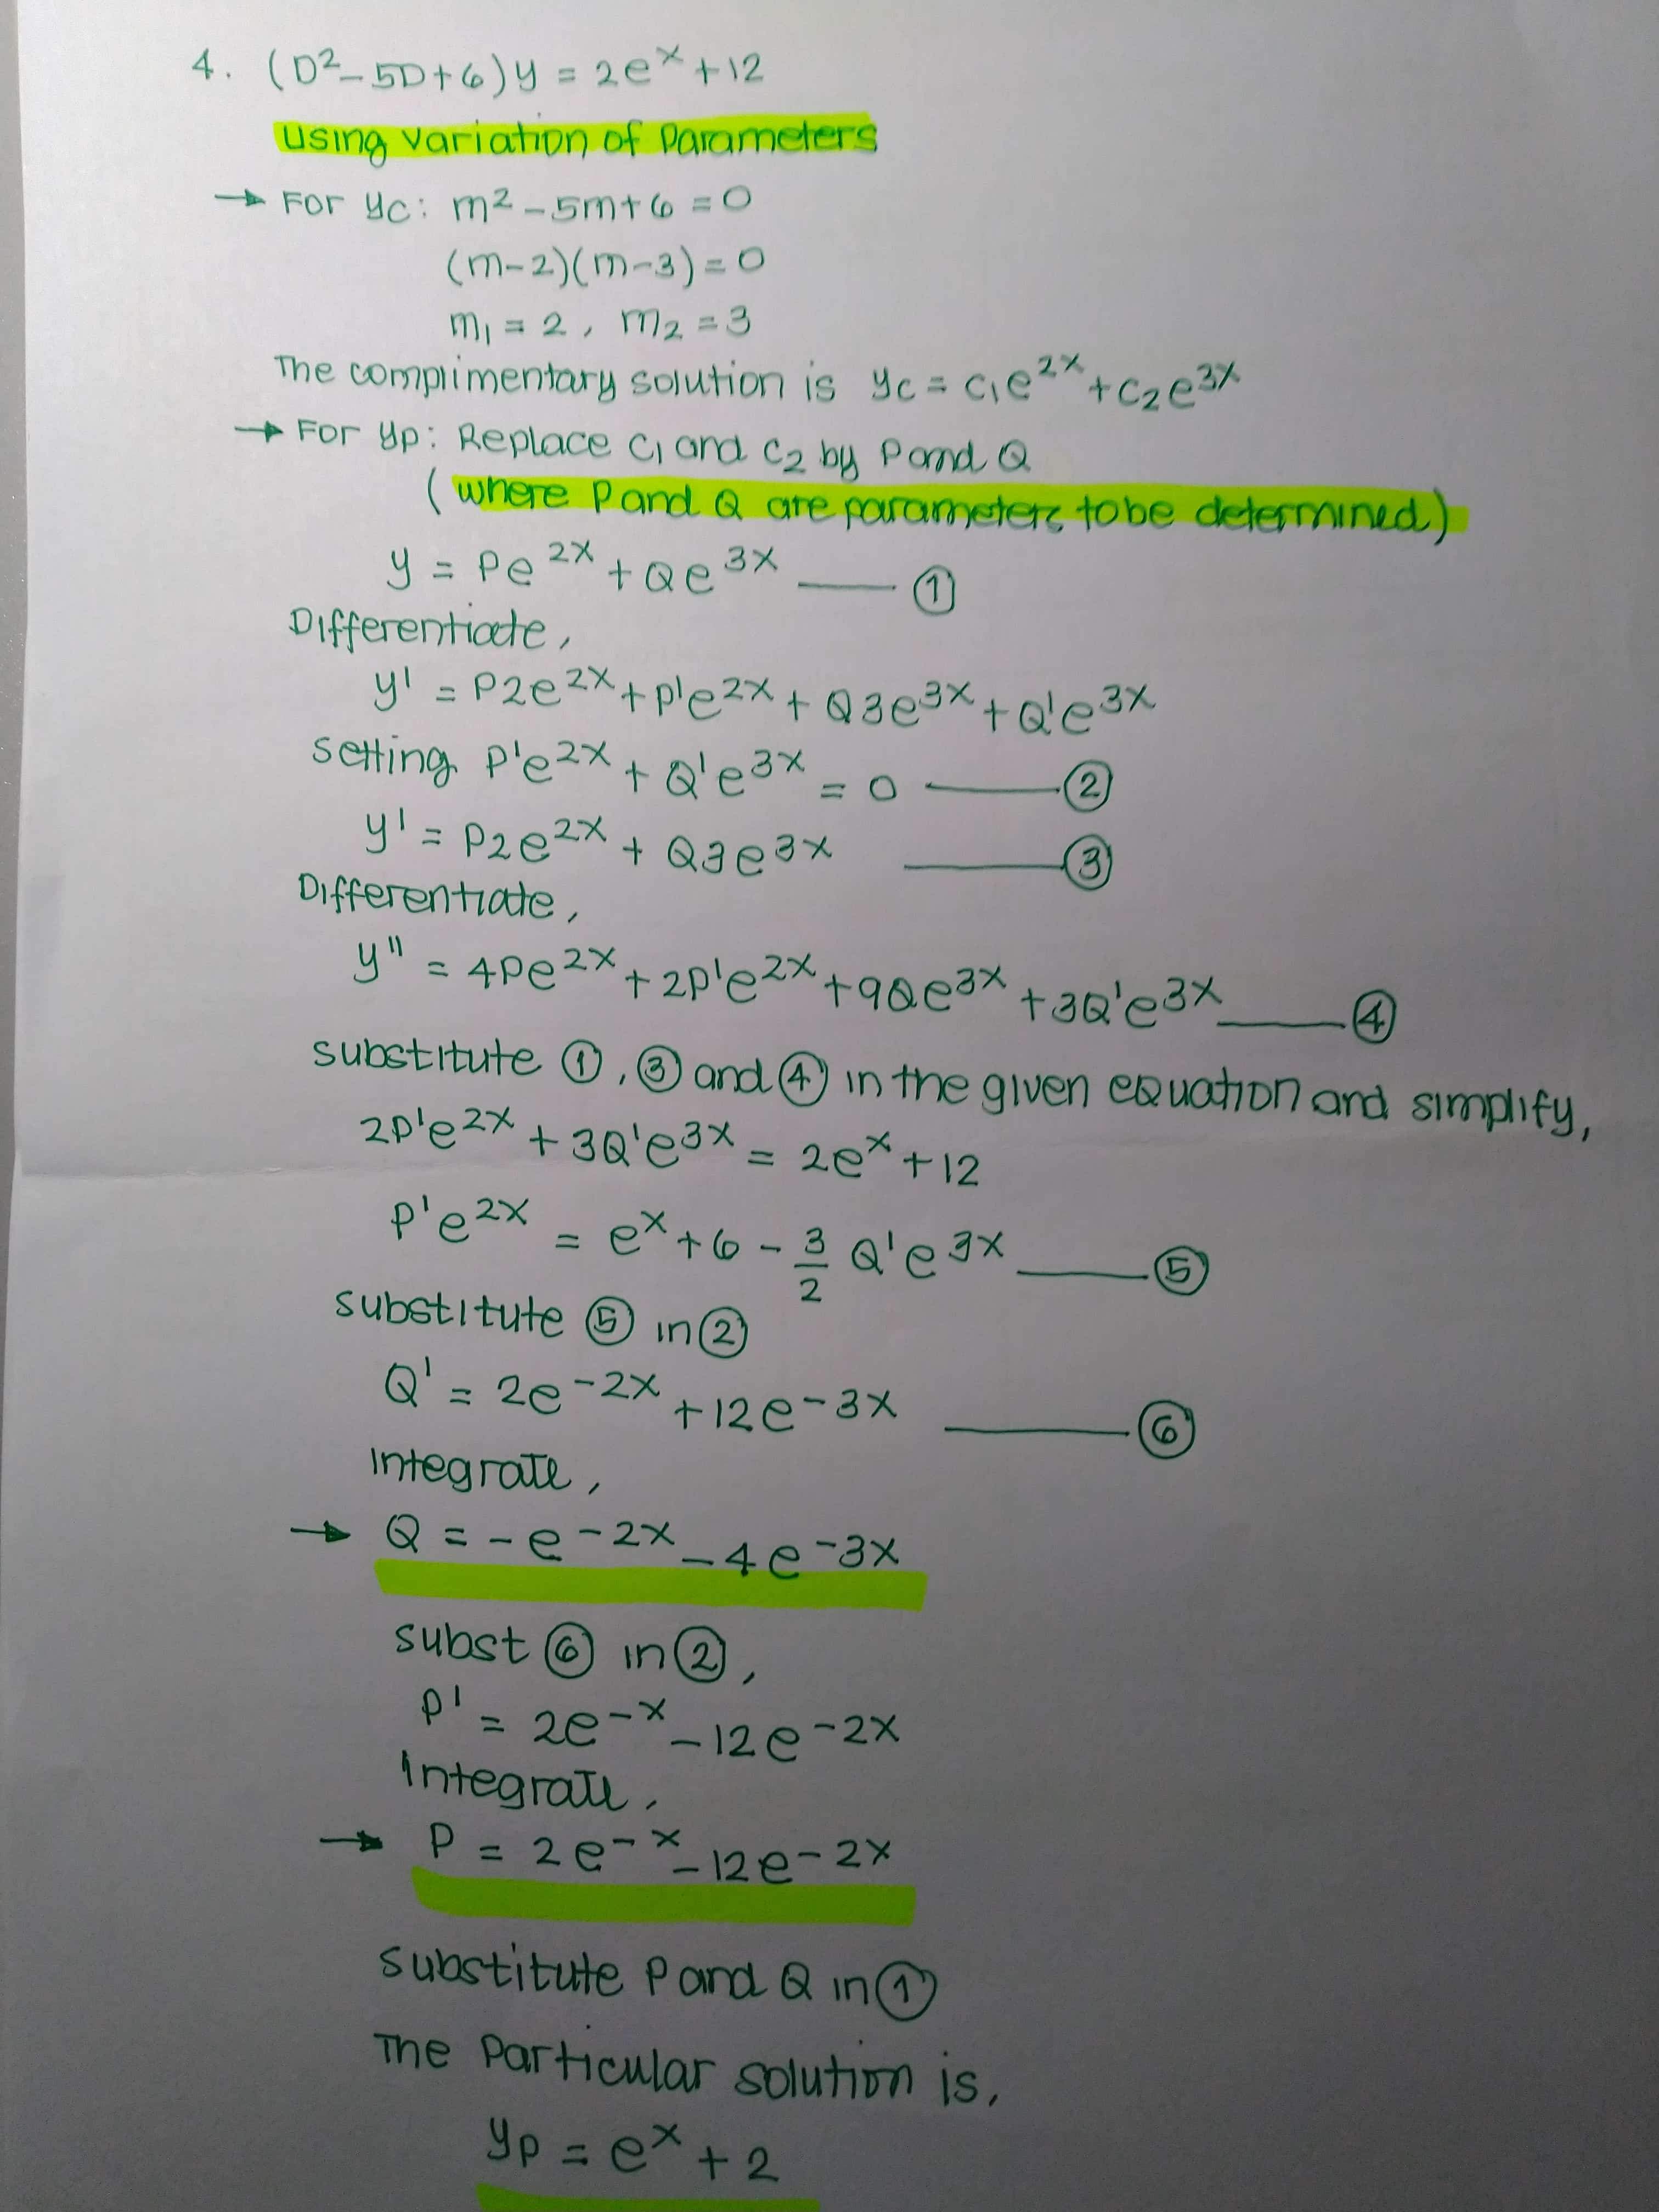 4. (D²-5D+6)y = 2eˣ+12
using variation of Parameters
→ For yc: m²-5m+6=0
(m-2)(m-3)=0
m₁=2, m₂=3
The complimentary solution is yc = c₁e²ˣ+c₂e³ˣ
→ For yp: Replace c₁ and c₂ by P and Q
(where P and Q are parameters to be determined)
y = Pe²ˣ+Qe³ˣ —— ①
Differentiate,
y' = P2e²ˣ+P'e²ˣ+Q3e³ˣ+Q'e³ˣ
setting P'e²ˣ+Q'e³ˣ=0 —— ②
y' = P2e²ˣ+Q3e³ˣ —— ③
Differentiate,
y'' = 4Pe²ˣ+2P'e²ˣ+9Qe³ˣ+3Q'e³ˣ —— ④
substitute ①, ③ and ④ in the given equation and simplify,
2P'e²ˣ+3Q'e³ˣ = 2eˣ+12
P'e²ˣ = eˣ+6-3/2 Q'e³ˣ —— ⑤
substitute ⑤ in ②
Q' = 2e⁻²ˣ+12e⁻³ˣ —— ⑥
Integrate,
→ Q = -e⁻²ˣ-4e⁻³ˣ
subst ⑥ in ②,
P' = 2e⁻ˣ-12e⁻²ˣ
Integrate,
→ P = 2e⁻ˣ-12e⁻²ˣ
substitute P and Q in ①
The Particular solution is,
yp = eˣ+2